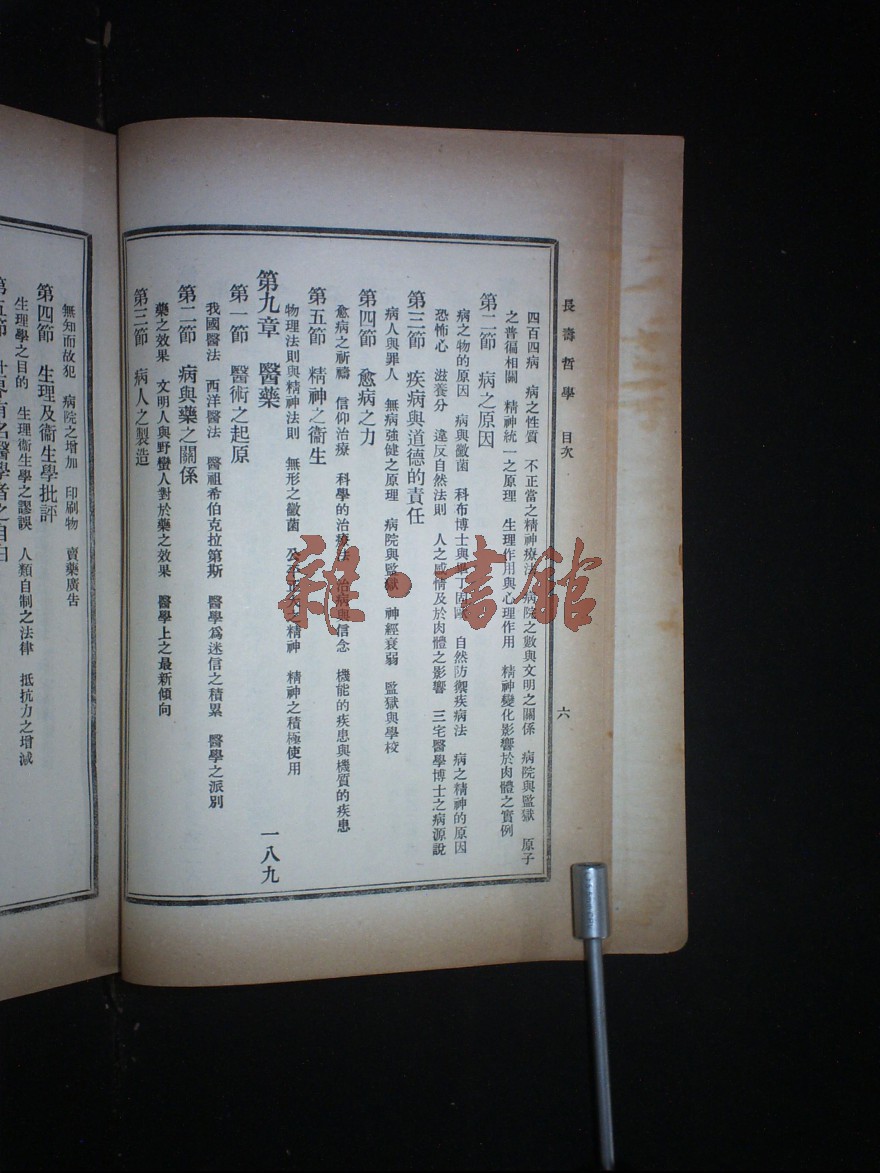 長壽哲學　目次
六
四百四病　病之性質　不正當之精神療法　病院之數與文明之關係　病院與監獄　原子
之普徧相關　精神統一之原理　生理作用與心理作用　精神變化影響於肉體之實例
第二節　病之原因
病之物的原因　病與黴菌　科布博士與　自然防禦疾病法　病之精神的原因
恐怖心　滋養分　違反自然法則　人之感情及於肉體之影響　三宅醫學博士之病源說
第三節　疾病與道德的責任
病人與罪人　無病強健之原理　病院與監獄　神經衰弱　監獄與學校
第四節　愈病之力
愈病之祈禱　信仰治療　科學的治療法　治病與信念　機能的疾患與機質的疾患
第五節　精神之衞生
物理法則與精神法則　無形之黴菌　公不正大之精神　精神之積極使用
第九章　醫藥　一八九
第一節　醫術之起原
我國醫法　西洋醫法　醫祖希伯克拉第斯　醫學爲迷信之積累　醫學之派別
第二節　病與藥之關係
藥之效果　文明人與野蠻人對於藥之效果　醫學上之最新傾向
第三節　病人之製造
無知而故犯　病院之增加　印刷物　賣藥廣告
第四節　生理及衞生學批評
生理學之目的　生理衞生學之謬誤　人類自制之法律　抵抗力之增減
第五節　世界有名醫學者之自白
雜·書館